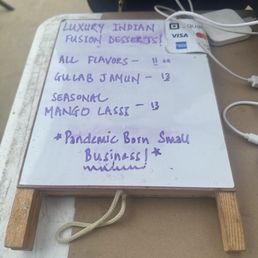 LUXURY INDIAN
FUSION DESSERTS!
ALL FLAVORS -
GULAB JAMUN - 13
SEASONAL
MANGO LASSI - 13
*Pandemic Born Small
Business!*
VISA